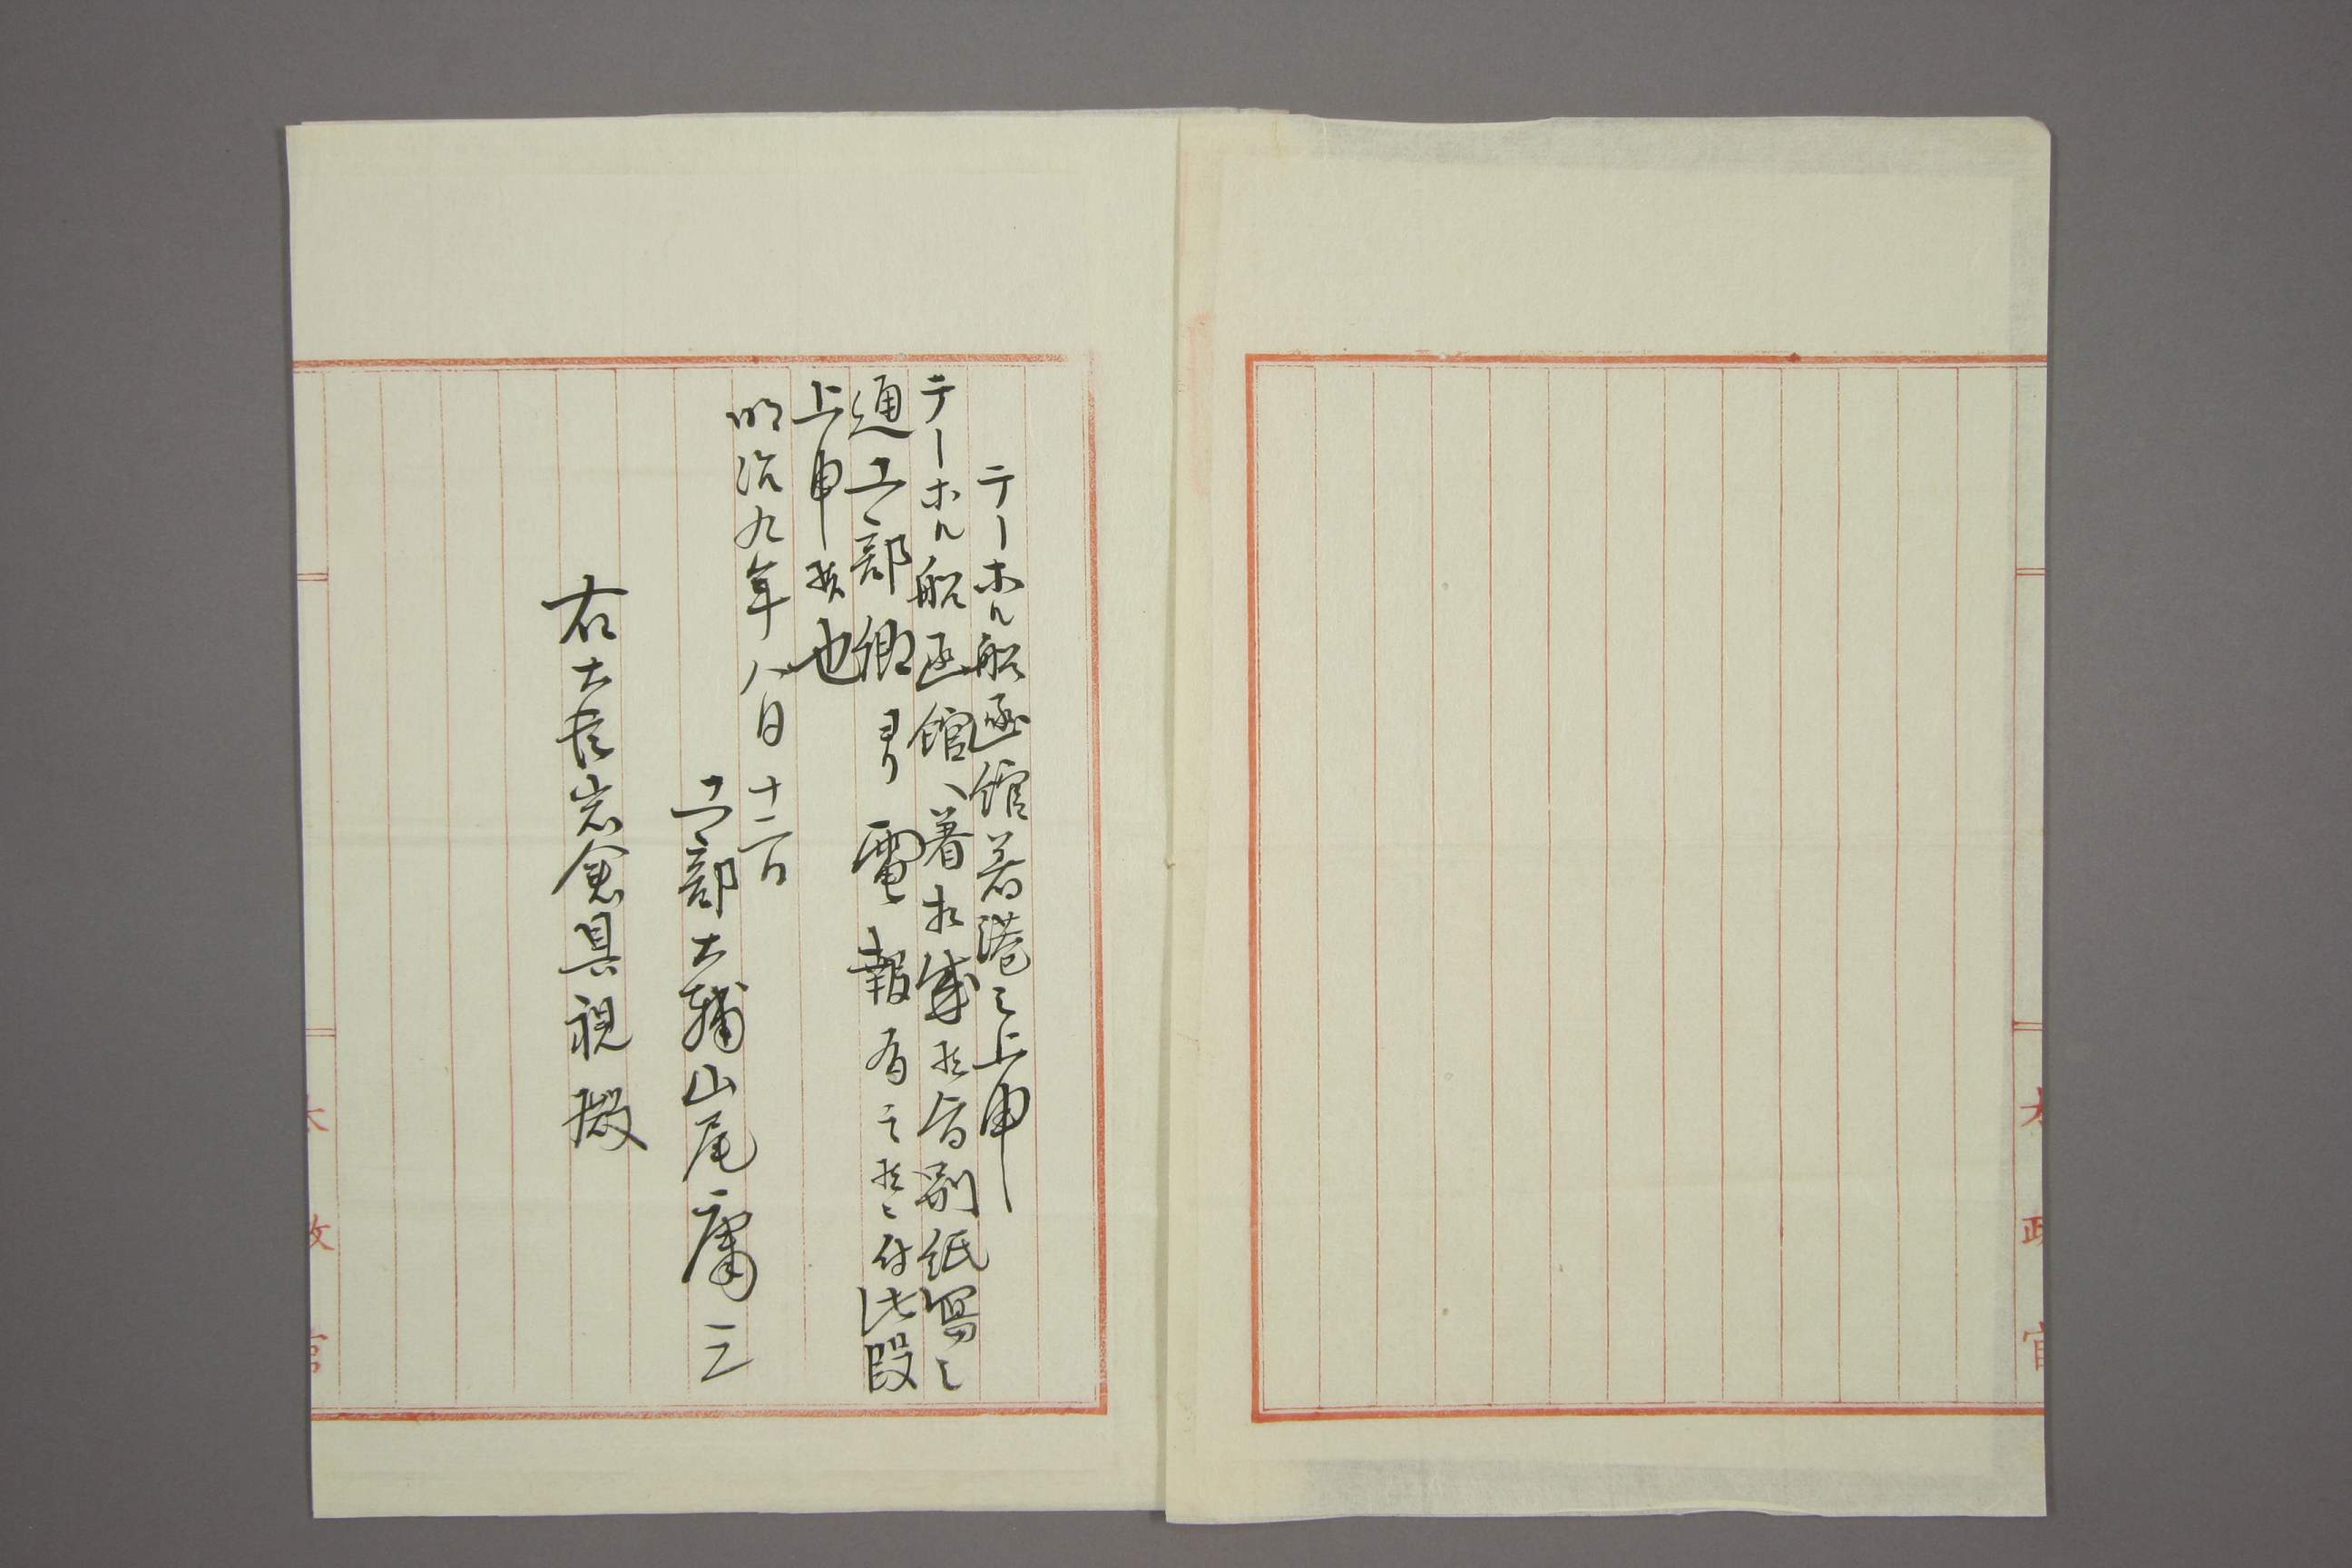 太政官
テーホル船函館着港之上申
テーホル船函館ヘ着相成候旨別紙寫之
通工部卿ヨリ電報有之候ニ付此段
上申候也
明治九年八月十二日
工部大輔山尾庸三
右大臣岩倉具視殿
太政官